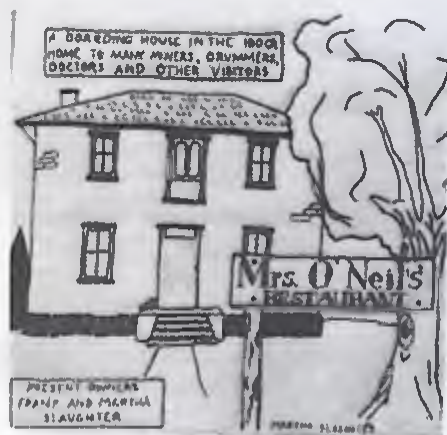 A BOARDING HOUSE IN THE 1800s
HOME TO MANY MINERS, DRUMMERS,
DOCTORS AND OTHER VISITORS
Mrs. O'Neil's
RESTAURANT
PRESENT OWNERS
FRANK AND MARTHA
SLAUGHTER
MARTHA SLAUGHTER